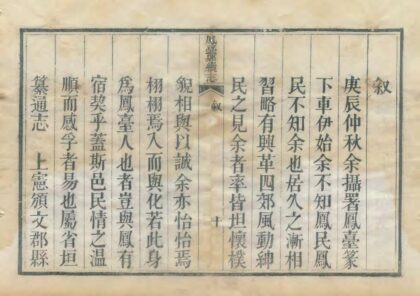 叙
庚辰仲秋余攝署鳳臺篆
下車伊始余不知鳳民鳳
民不知余也居久之漸相
習略有興革四郊風動紳
民之見余者率皆坦懷樸
鳳臺縣續志
叙
十
貌相與以誠余亦怡怡焉
栩栩焉入而與化若此身
為鳳臺人也者豈與鳳有
宿契乎蓋斯邑民情之温
順而感孚者易也屬省垣
纂通志 上憲頒文郡縣